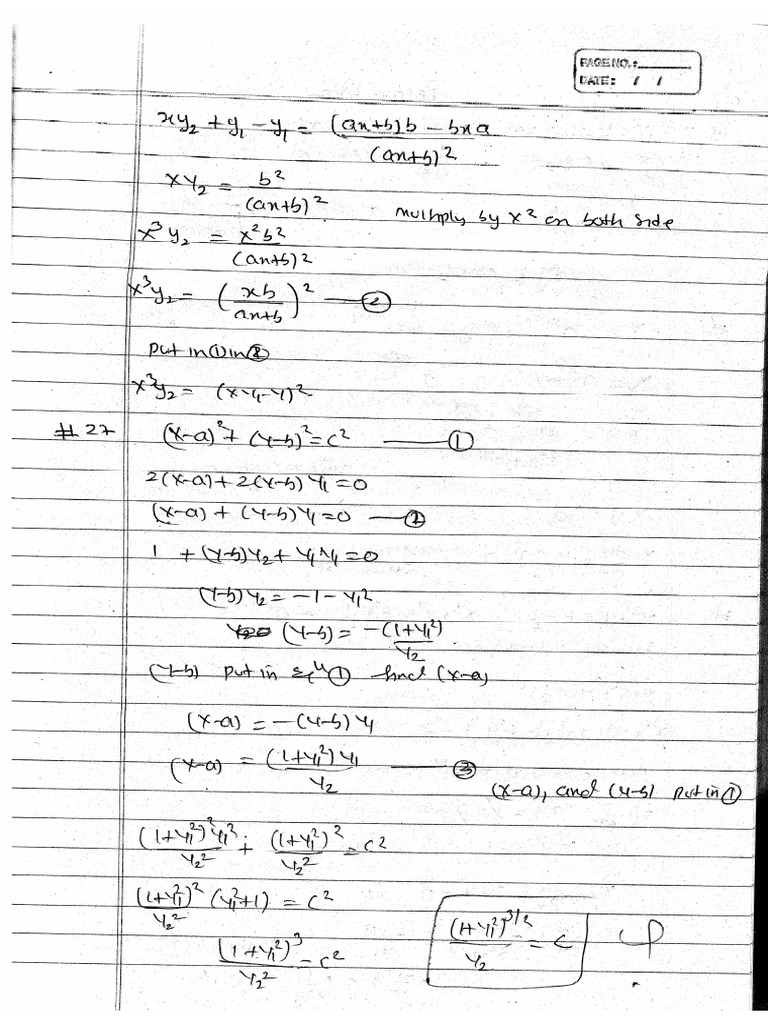 PAGE NO.:
DATE: / /
xy₂ + y₁ - y₁ = (ax+b)b - bxa / (ax+b)²
xy₂ = b² / (ax+b)²
multiply by x² on both side
x³y₂ = x²b² / (ax+b)²
x³y₂ = (xb / ax+b)² —②
put in ① in ②
x³y₂ = (xy₁-y)²
#27 (x-a)² + (y-b)² = c² —①
2(x-a) + 2(y-b) y₁ = 0
(x-a) + (y-b)y₁ = 0 —②
1 + (y-b)y₂ + y₁ y₁ = 0
(y-b)y₂ = -1 - y₁²
(y-b) = -(1+y₁²) / y₂
(y-b) put in eqⁿ ① find (x-a)
(x-a) = -(y-b) y₁
(x-a) = (1+y₁²) y₁ / y₂ —③
(x-a), and (y-b) put in ①
(1+y₁²)²y₁² / y₂² + (1+y₁²)² / y₂² = c²
(1+y₁²)² / y₂² (y₁²+1) = c²
(1+y₁²)³ / y₂² = c²
(1+y₁²)^3/2 / y₂ = c